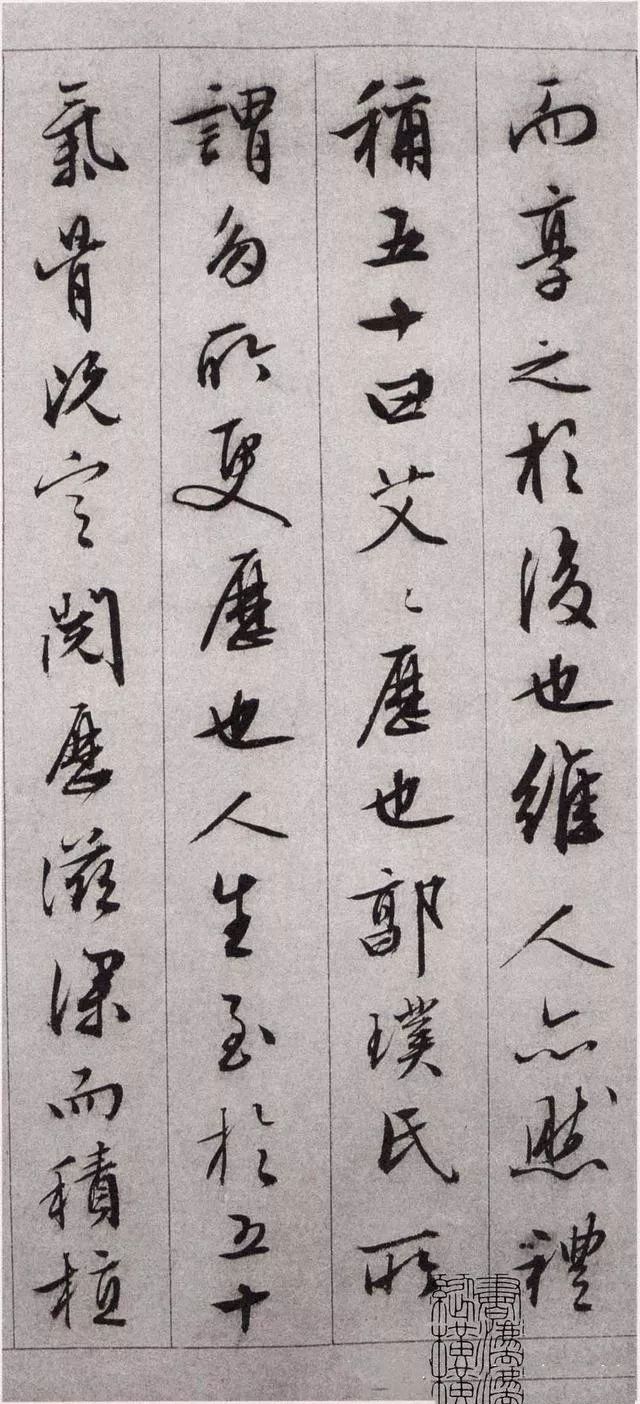 而享之於後也維人亦然禮
稱五十曰艾〻歷也郭璞氏所
謂多所更歷也人生至於五十
氣骨既定閱歷滋深而積植